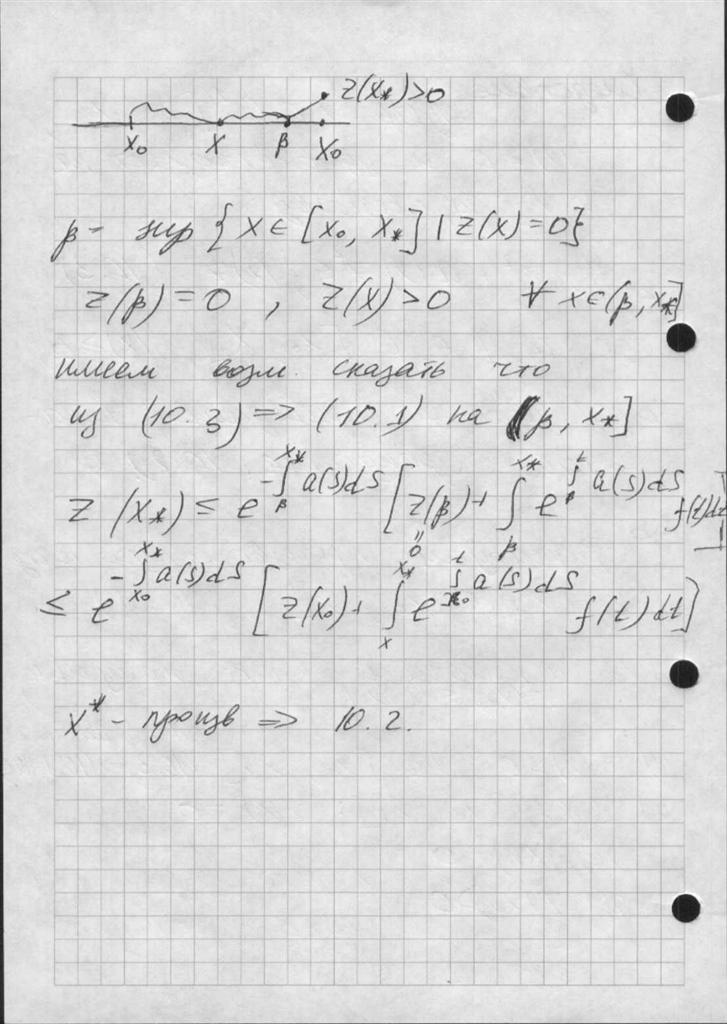 z(x_*)>0
x_0 x β x_0
β - sup { x ∈ [x_0, x_*] | z(x) = 0}
z(β) = 0 , z(x) > 0 ∀ x ∈ (β, x_*]
имеем возм. сказать что
из (10.3) => (10.1) на (β, x_*]
z(x_*) ≤ e^{-∫_β^{x_*} a(s)ds} [z(β) + ∫_β^{x_*} e^{∫_β^t a(s)ds} f(t)dt]
‖
0
≤ e^{-∫_{x_0}^{x_*} a(s)ds} [z(x_0) + ∫_x^{x_*} e^{∫_{x_0}^t a(s)ds} f(t)dt]
x^* - произв => 10.2.